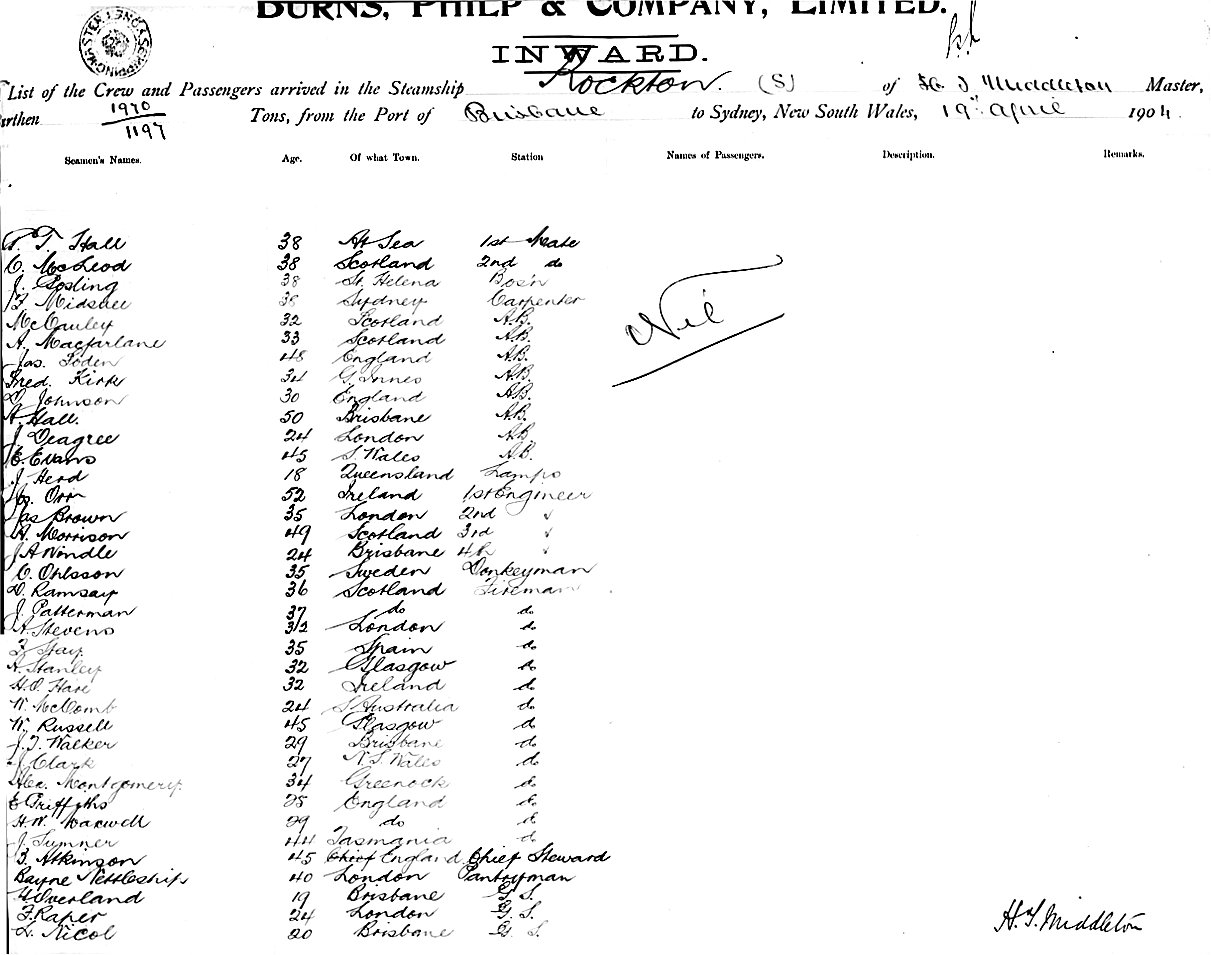 BURNS, PHILP & COMPANY, LIMITED.
INWARD.
List of the Crew and Passengers arrived in the Steamship Rockton. (S) of H. T Middleton Master,
urthen 1970/1197 Tons, from the Port of Brisbane to Sydney, New South Wales, 19th April 1904.
Seamen's Names. Age. Of what Town. Station Names of Passengers. Description. Remarks.
T. Hall 38 At Sea 1st Mate
C. McLeod 38 Scotland 2nd do
J. Gosling 38 St. Helena Bos'n
38 Sydney Carpenter
Nil
McCauley 32 Scotland A.B.
A. Macfarlane 33 Scotland A.B.
Jas. Foden 48 England A.B.
Fred. Kirk 34 G. Innes A.B.
D. Johnson 30 England A.B.
Hall. 50 Brisbane A.B.
J. Deagree 24 London A.B.
E. Evans 45 S. Wales A.B.
J. Herd 18 Queensland Lamps
Jas. Orr 52 Ireland 1st Engineer
Jas Brown 35 London 2nd "
A. Morrison 49 Scotland 3rd "
J A Windle 24 Brisbane 4th "
O. Ohlsson 35 Sweden Donkeyman
D. Ramsay 36 Scotland Fireman
J. Patterman 37 do do
A. Stevens 32 London do
F. Stay. 35 Spain do
A. Stanley 32 Glasgow do
H. O. Hare 32 Ireland do
W. McComb 24 S Australia do
W. Russell 45 Glasgow do
J. T. Walker 29 Brisbane do
J Clark 27 N. S. Wales do
Alex. Montgomery. 34 Greenock do
E Griffyths 25 England do
H. W. Maxwell 29 do do
J. Sumner 44 Tasmania do
Atkinson 45 Chief England Chief Steward
Bayne Nettleship 40 London Pantryman
Overland 19 Brisbane G. S.
F. Raper 24 London G. S.
L. Nicol 20 Brisbane G. S.
H. T. Middleton